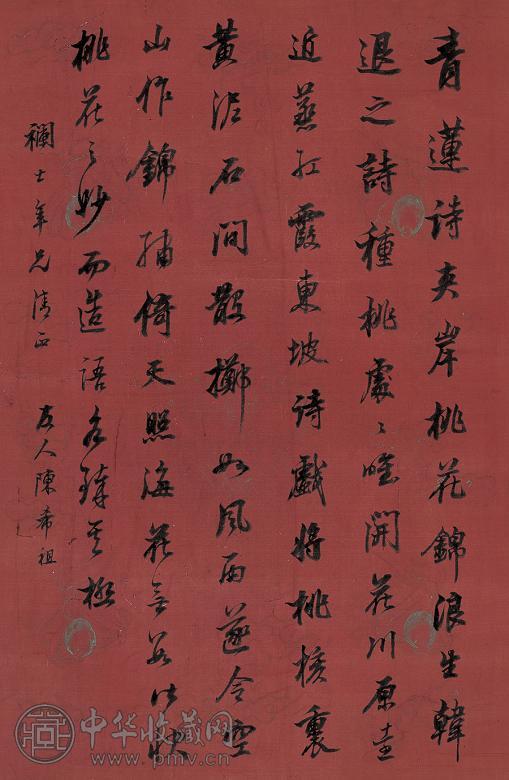 青蓮诗夾岸桃花錦浪生韓
退之詩種桃處々唯開花川原盡
近蒸红霞東坡诗戲将桃核裹
黄泥石间散擲如風雨遂令空
山作錦繡倚天照海花無数
桃花之妙而造语各臻其極
襴士年兄清正 友人陳希祖
中华收藏网
www.pmv.cn